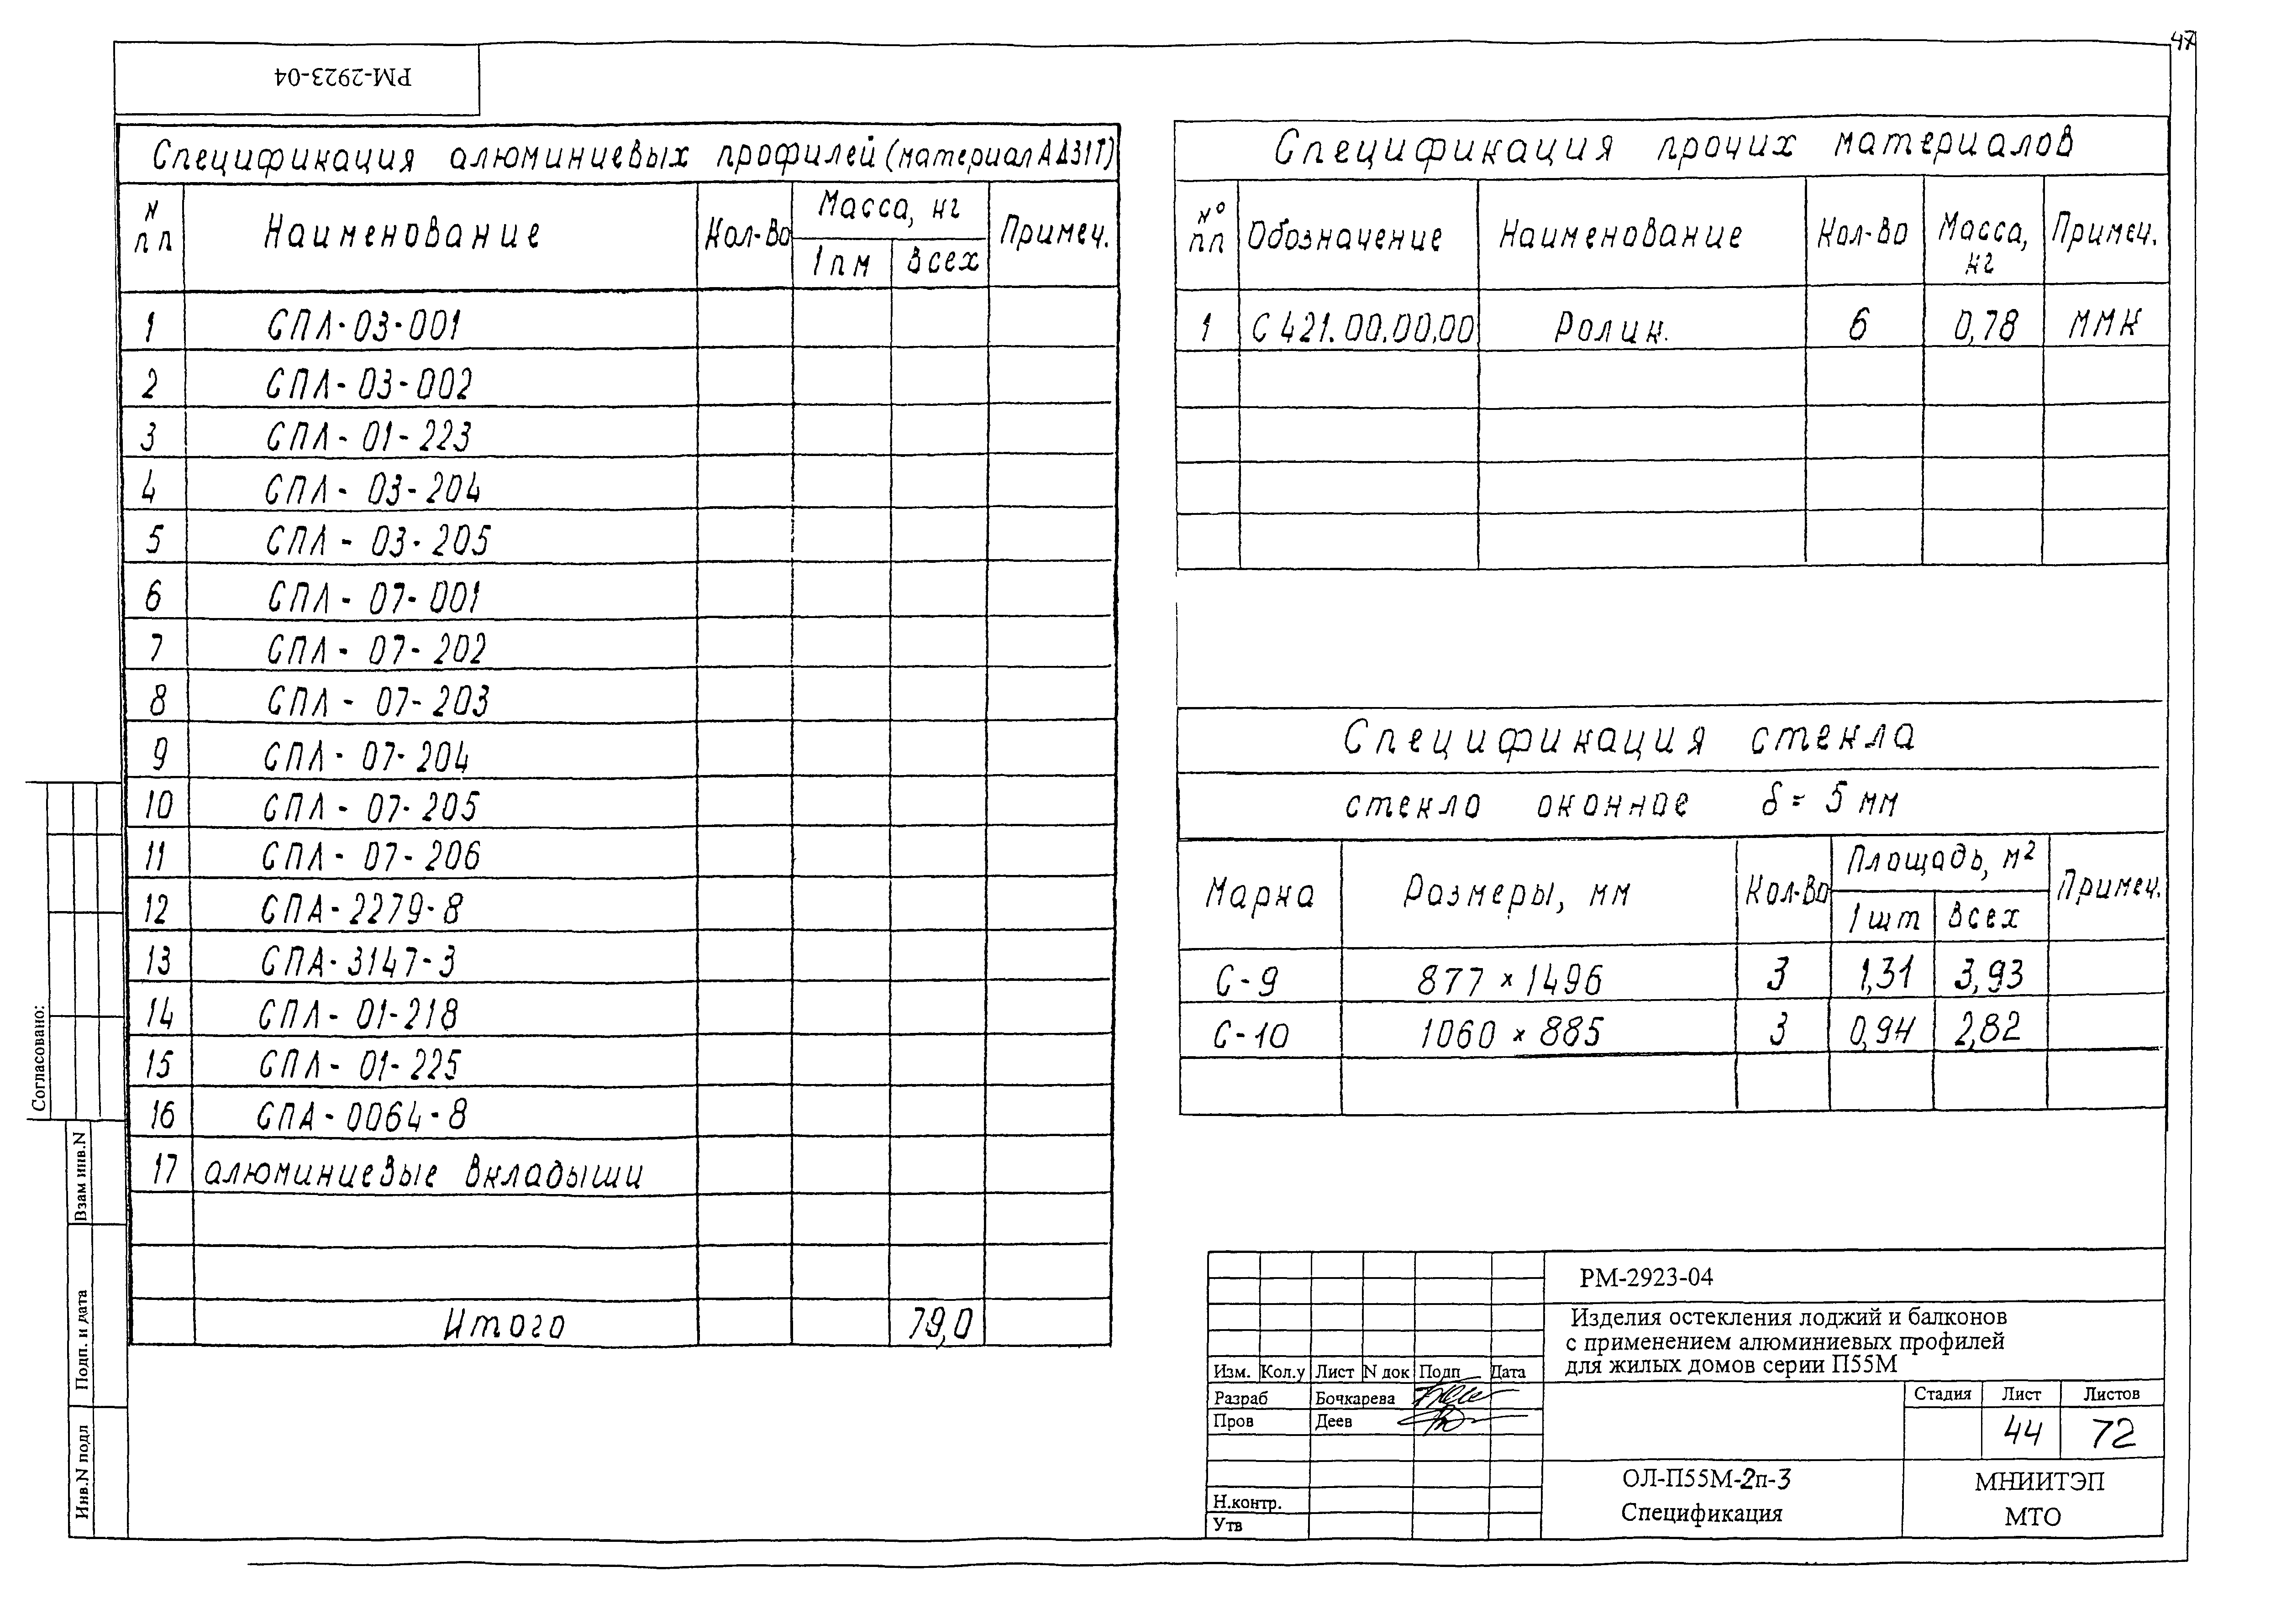 47
РМ-2923-04
Спецификация алюминиевых профилей (материал АД31Т)
N пп Наименование Кол-во Масса, кг Примеч.
1 пм всех
1 СПЛ-03-001
2 СПЛ-03-002
3 СПЛ-01-223
4 СПЛ-03-204
5 СПЛ-03-205
6 СПЛ-07-001
7 СПЛ-07-202
8 СПЛ-07-203
9 СПЛ-07-204
10 СПЛ-07-205
11 СПЛ-07-206
12 СПА-2279-8
13 СПА-3147-3
14 СПЛ-01-218
15 СПЛ-01-225
16 СПА-0064-8
17 алюминиевые вкладыши
Итого 79,0
Спецификация прочих материалов
№ пп Обозначение Наименование Кол-во Масса, кг Примеч.
1 С 421.00.00.00 Ролик. 6 0,78 ММК
Спецификация стекла
стекло оконное δ = 5 мм
Марка Размеры, мм Кол-во Площадь, м² Примеч.
1 шт всех
С-9 877 × 1496 3 1,31 3,93
С-10 1060 × 885 3 0,94 2,82
Согласовано:
Взам инв.N
Подп. и дата
Инв.N подл
РМ-2923-04
Изделия остекления лоджий и балконов
с применением алюминиевых профилей
для жилых домов серии П55М
Изм. Кол.у Лист N док Подп Дата
Разраб Бочкарева
Пров Деев
Н.контр.
Утв
Стадия Лист Листов
44 72
ОЛ-П55М-2п-3
Спецификация
МНИИТЭП
МТО